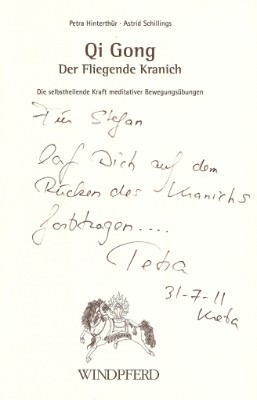 Petra Hinterthür · Astrid Schillings
Qi Gong
Der Fliegende Kranich
Die selbstheilende Kraft meditativer Bewegungsübungen
Für Stefan
Laß Dich auf dem
Rücken des Kranichs
forttragen....
Petra
31-7-11
Kreta
WINDPFERD